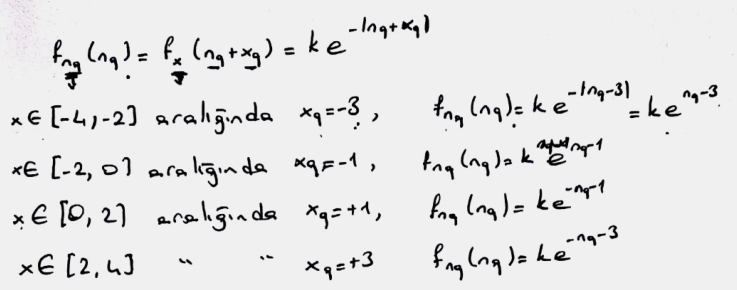 f_{nq}(nq) = f_x(nq+xq) = k e^{-|nq+xq|}
x∈ [-4,-2] aralığında xq=-3, f_{nq}(nq) = k e^{-|nq-3|} = k e^{nq-3}
x∈ [-2, 0] aralığında xq=-1, f_{nq}(nq) = k e^{nq-1}
x∈ [0, 2] aralığında xq=+1, f_{nq}(nq) = k e^{-nq-1}
x∈ [2,4] " " xq=+3 f_{nq}(nq) = k e^{-nq-3}